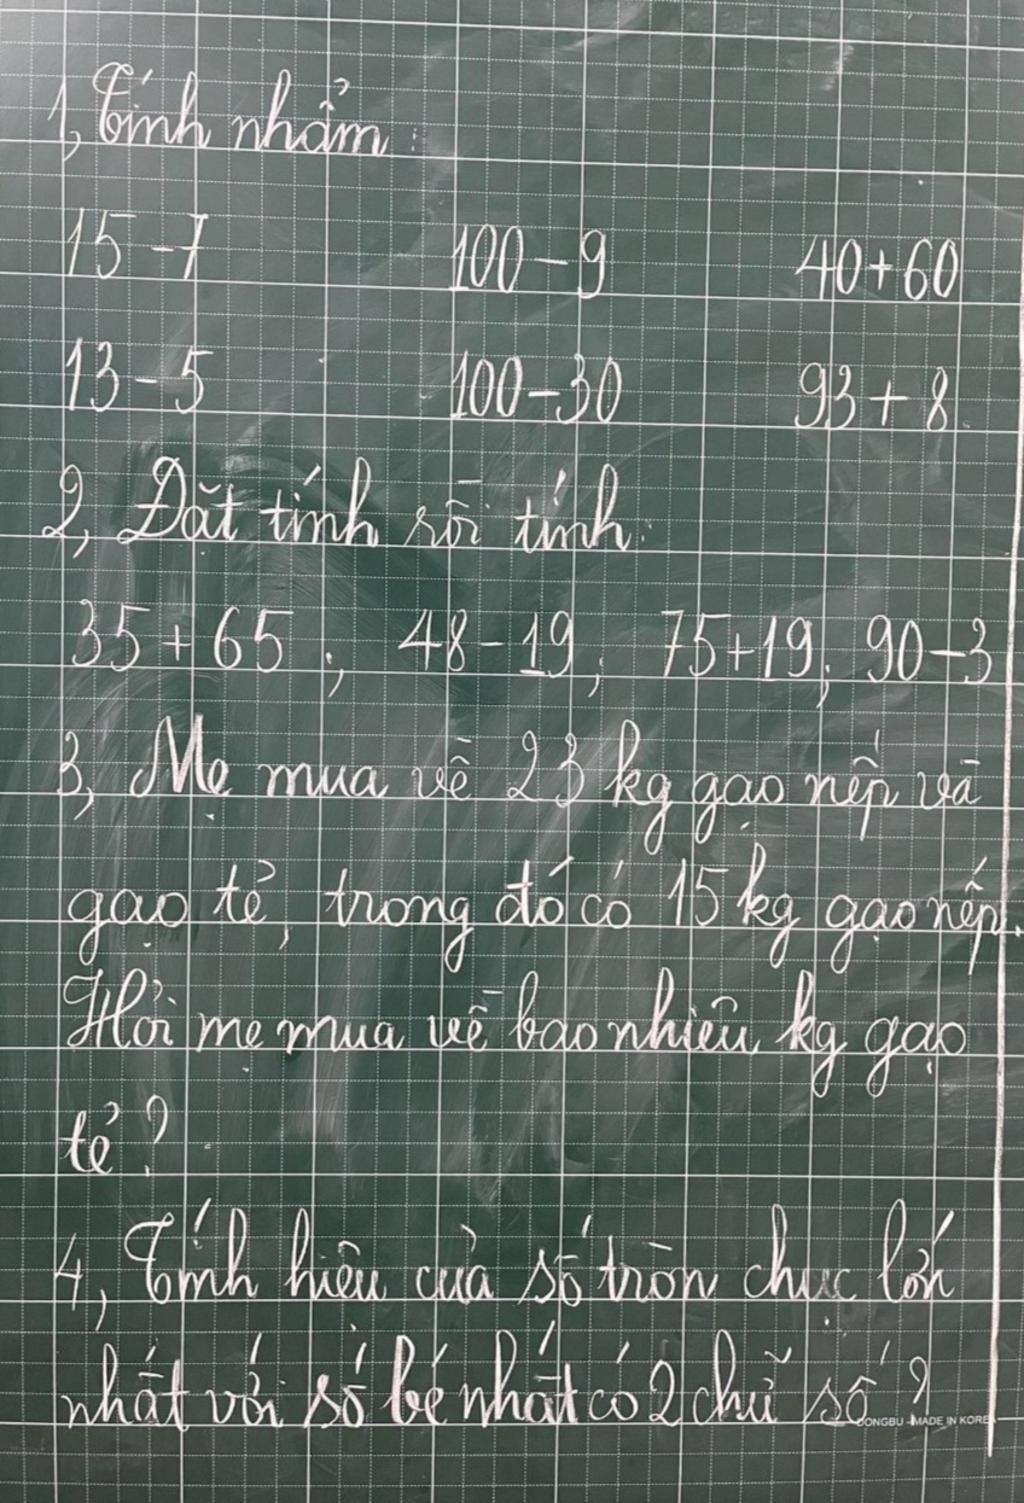 1, Tính nhẩm:
15 - 7 100 - 9 40 + 60
13 - 5 100 - 30 93 + 8
2, Đặt tính rồi tính:
35 + 65 ; 48 - 19 ; 75 + 19 ; 90 - 3
3, Mẹ mua về 23 kg gạo nếp và
gạo tẻ, trong đó có 15 kg gạo nếp.
Hỏi mẹ mua về bao nhiêu kg gạo
tẻ?
4, Tính hiệu của số tròn chục lớn
nhất với số bé nhất có 2 chữ số?
DONGBU - MADE IN KOREA